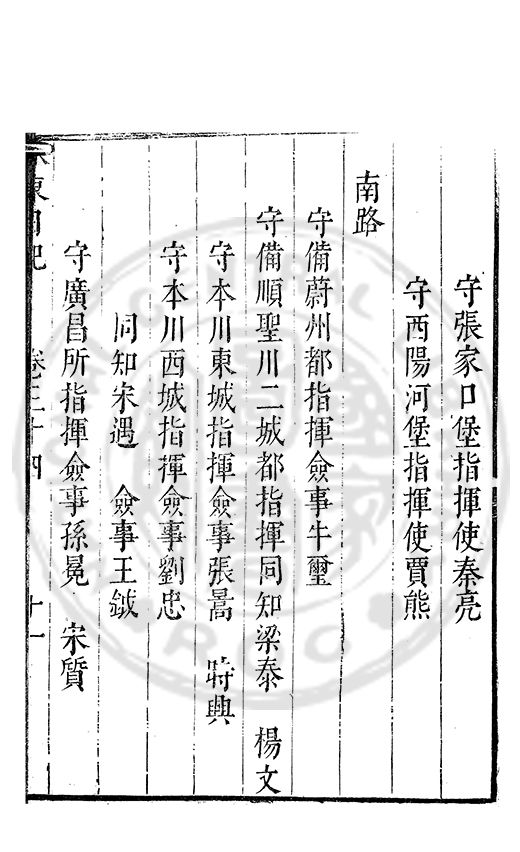 守張家口堡指揮使秦亮
守西陽河堡指揮使賈熊
南路
守備蔚州都指揮僉事牛璽
守備順聖川二城都指揮同知梁泰　楊文
守本川東城指揮僉事張暠　時興
守本川西城指揮僉事劉忠
同知宋遇　僉事王鉞
守廣昌所指揮僉事孫冕　宋質
東日記　卷三十四　十一